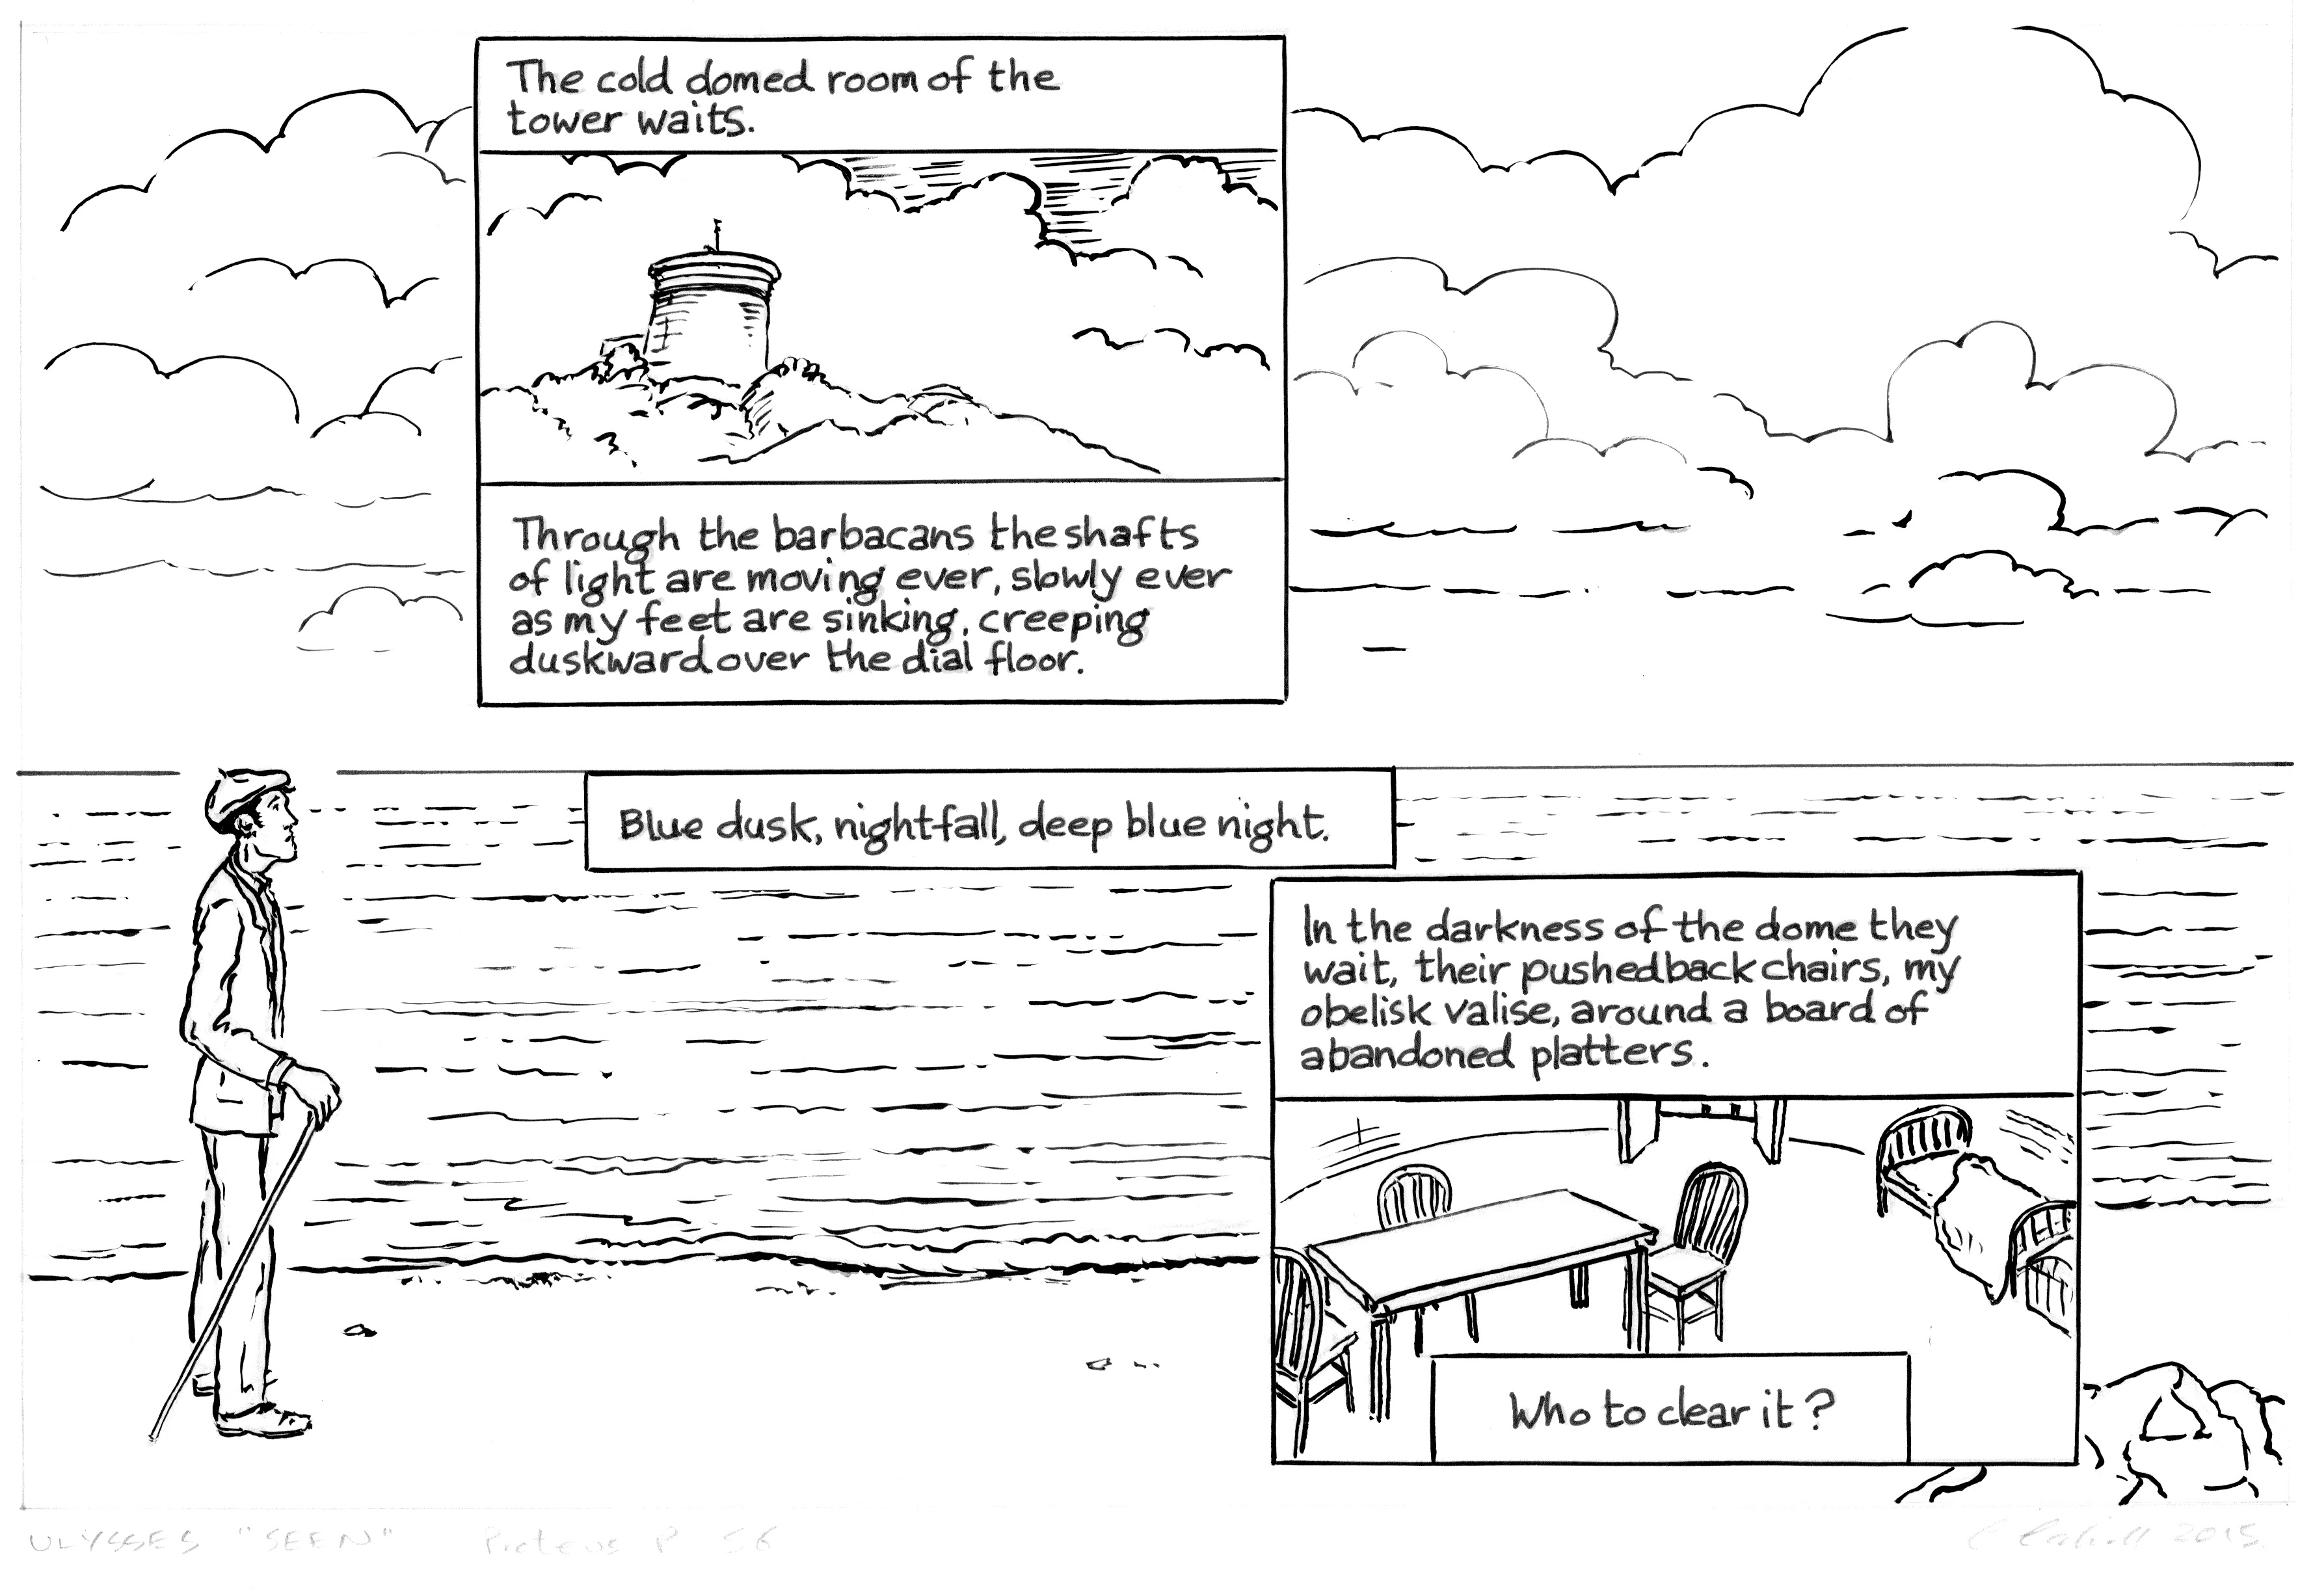 The cold domed room of the
tower waits.
Through the barbacans the shafts
of light are moving ever, slowly ever
as my feet are sinking, creeping
duskward over the dial floor.
Blue dusk, nightfall, deep blue night.
In the darkness of the dome they
wait, their pushedback chairs, my
obelisk valise, around a board of
abandoned platters.
Who to clear it?
ULYSSES "SEEN" Proteus P 56
2015